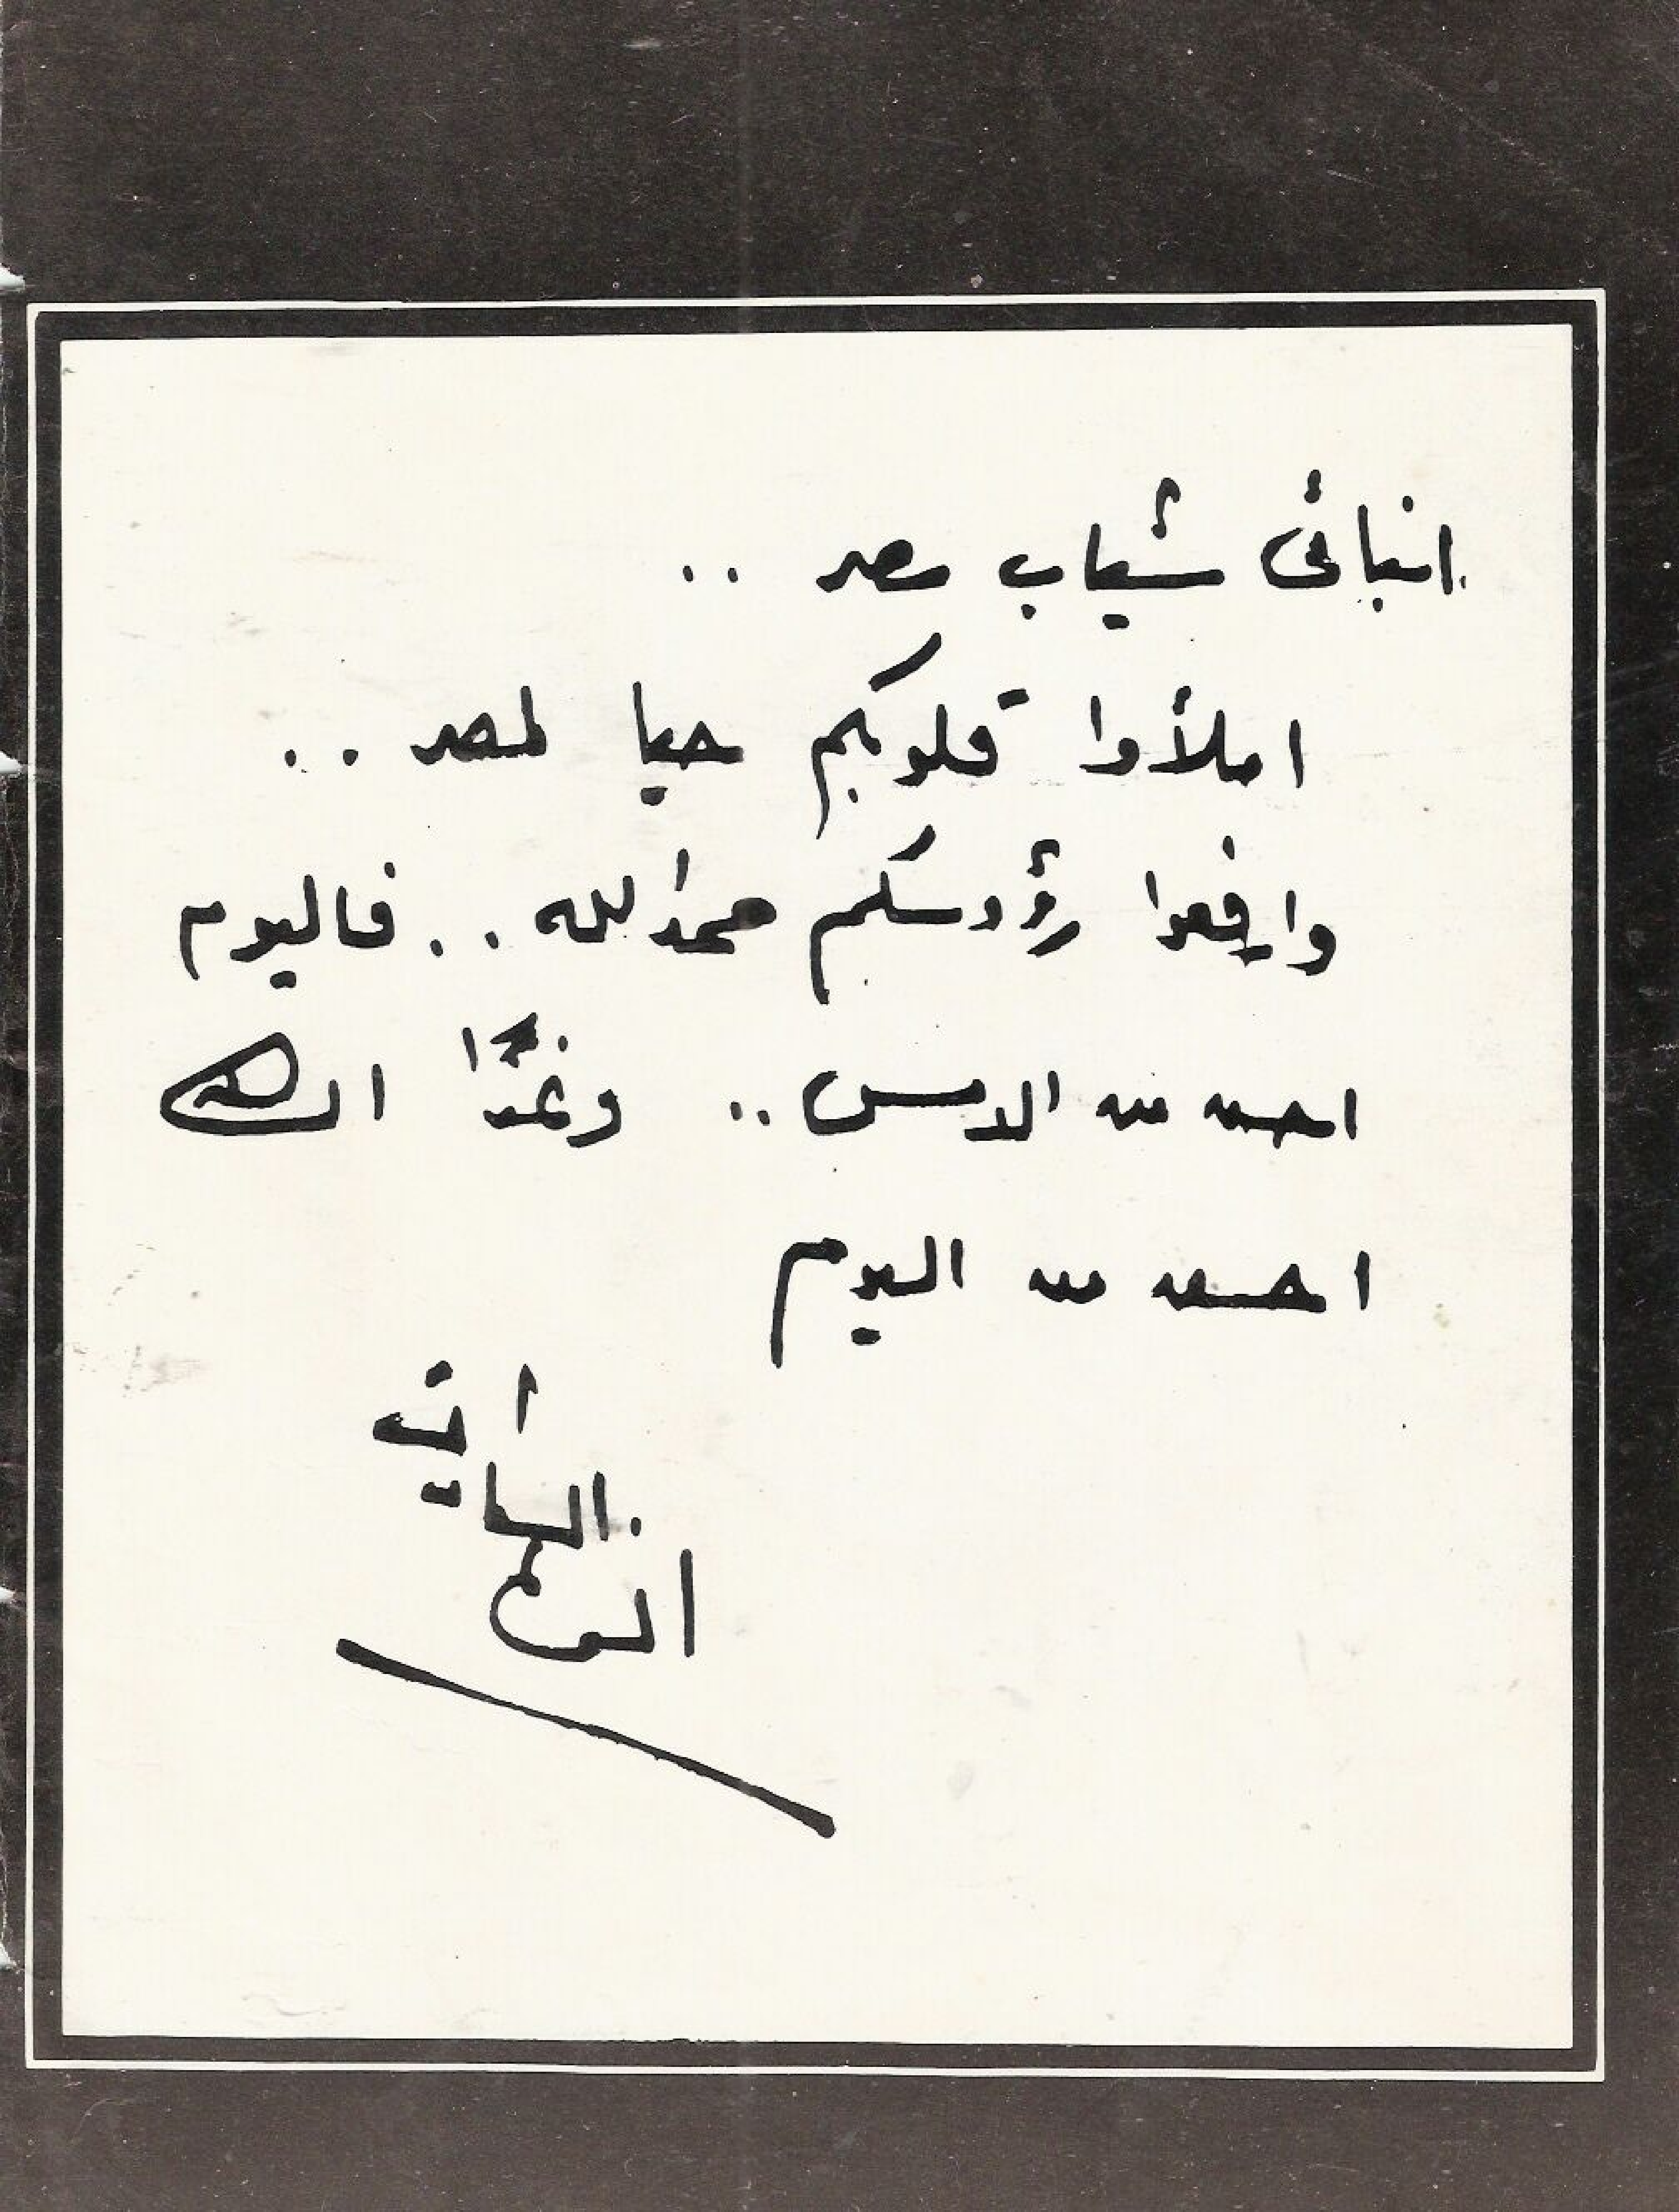 ابنائى شباب مصر ..
املأوا قلوبكم حبا لمصر ..
وارفعوا رؤوسكم حمدا لله .. فاليوم
احسن من الامس .. وغدًا
احسن من اليوم
انور السادات